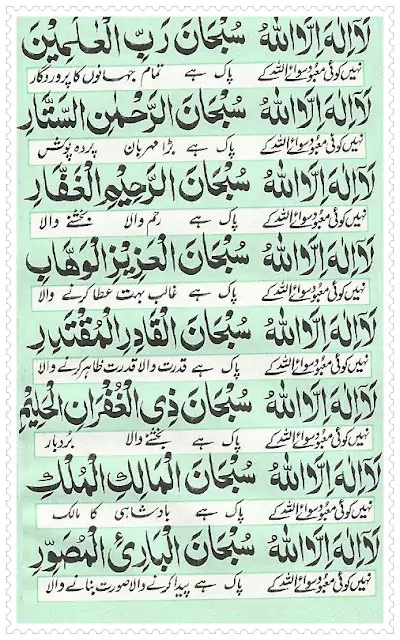 لَآ اِلٰهَ اِلَّا اللهُ سُبْحَانَ رَبِّ الْعٰلَمِيْنَ
نہیں کوئی معبود سوائے اللہ کے پاک ہے تمام جہانوں کا پروردگار
لَآ اِلٰهَ اِلَّا اللهُ سُبْحَانَ الرَّحْمٰنِ السَّتَّارِ
نہیں کوئی معبود سوائے اللہ کے پاک ہے بڑا مہربان پردہ پوش
لَآ اِلٰهَ اِلَّا اللهُ سُبْحَانَ الرَّحِيْمِ الْغَفَّارِ
نہیں کوئی معبود سوائے اللہ کے پاک ہے رحم والا بخشنے والا
لَآ اِلٰهَ اِلَّا اللهُ سُبْحَانَ الْعَزِيْزِ الْوَهَّابِ
نہیں کوئی معبود سوائے اللہ کے پاک ہے غالب بہت عطا کرنے والا
لَآ اِلٰهَ اِلَّا اللهُ سُبْحَانَ الْقَادِرِ الْمُقْتَدِرِ
نہیں کوئی معبود سوائے اللہ کے پاک ہے قدرت والا قدرت ظاہر کرنے والا
لَآ اِلٰهَ اِلَّا اللهُ سُبْحَانَ ذِي الْغُفْرَانِ الْحَلِيْمِ
نہیں کوئی معبود سوائے اللہ کے پاک ہے بخشنے والا بردبار
لَآ اِلٰهَ اِلَّا اللهُ سُبْحَانَ الْمَالِكِ الْمُلْكِ
نہیں کوئی معبود سوائے اللہ کے پاک ہے بادشاہی کا مالک
لَآ اِلٰهَ اِلَّا اللهُ سُبْحَانَ الْبَارِئِ الْمُصَوِّرِ
نہیں کوئی معبود سوائے اللہ کے پاک ہے پیدا کرنے والا صورت بنانے والا